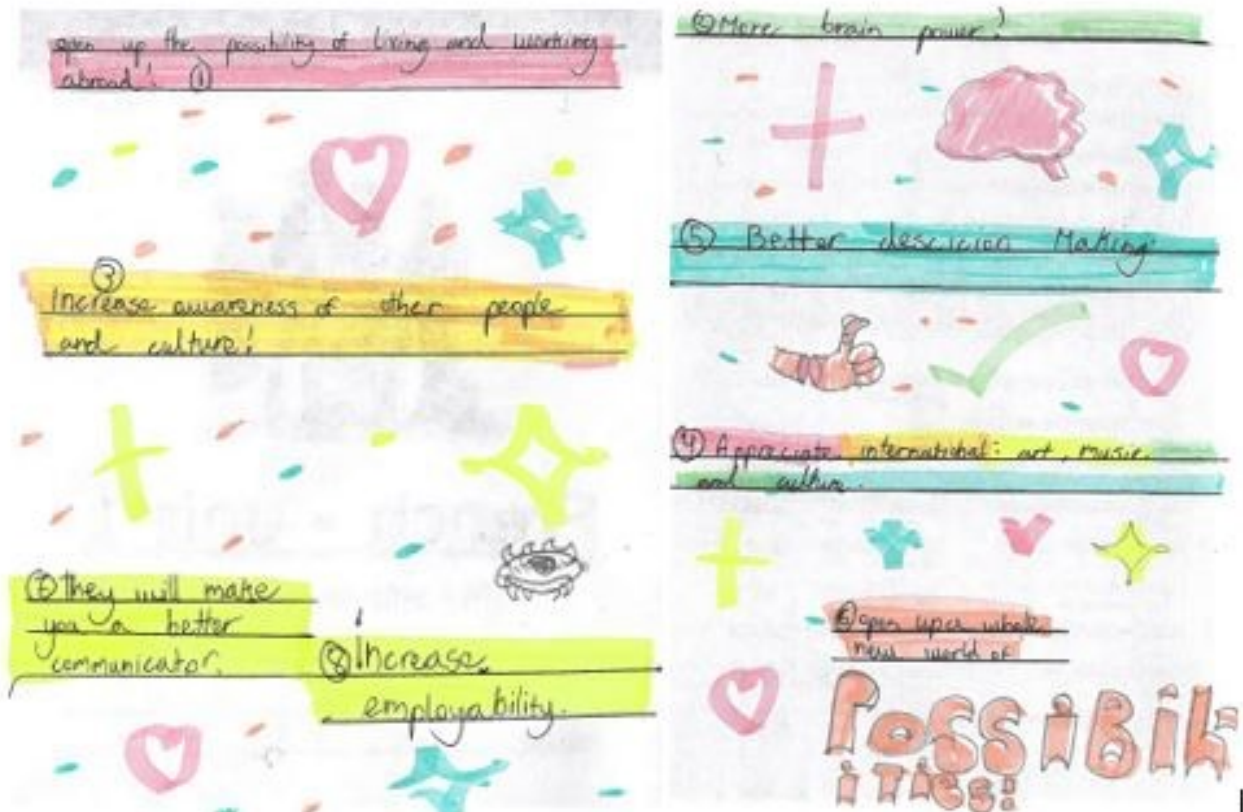 open up the possibility of living and working
abroad! ①
③
Increase awareness of other people
and culture!
⑦ they will make
you a better
communicator.
⑧ Increase
employability.
② More brain power!
⑤ Better descicion Making
④ Appreciate international: art, music
and culture.
⑥ open up a whole
new world of
POSSIBIL
ITIES!